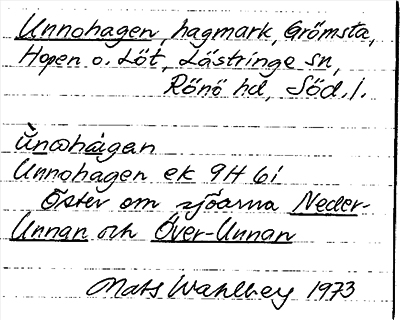 Unnohagen, hagmark, Grömsta,
Hopen o. Löt, Lästringe sn,
Rönö hd, Söd. l.
ùnωhàgan
Unnohagen ek 9H 6i
Öster om sjöarna Neder-
Unnan och Över-Unnan
Mats Wahlberg 1973